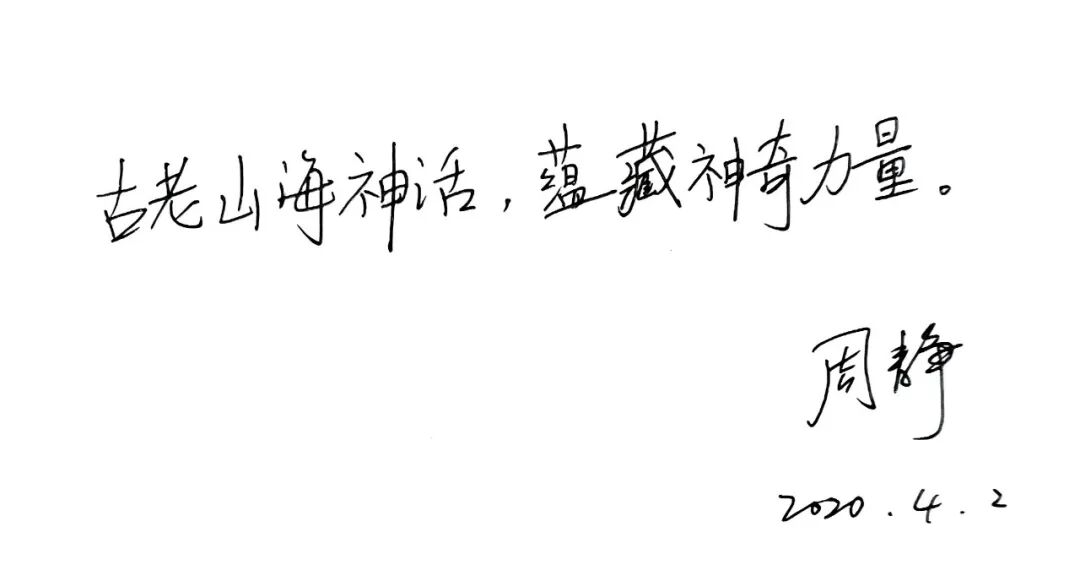 古老山海神话，蕴藏神奇力量。
周静
2020.4.2